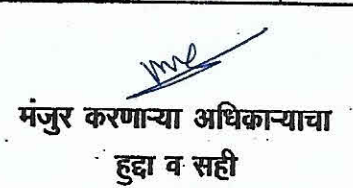 मंजुर करणाऱ्या अधिकाऱ्याचा
हुद्दा व सही